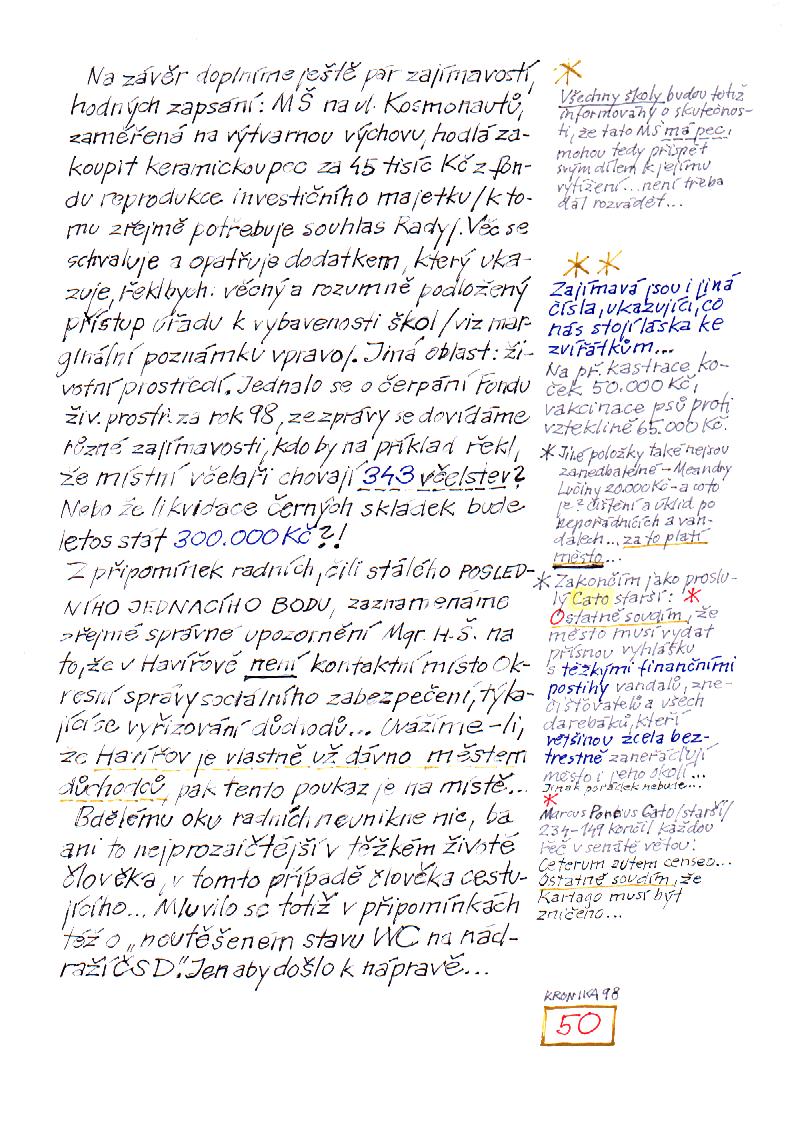 Na závěr doplníme ještě pár zajímavostí,
hodných zapsání: MŠ na ul. Kosmonautů,
zaměřená na výtvarnou výchovu, hodlá za-
koupit keramickou pec za 45 tisíc Kč z fon-
du reprodukce investičního majetku/k to-
mu zřejmě potřebuje souhlas Rady/. Věc se
schvaluje a opatřuje dodatkem, který uka-
zuje, řekl bych: věcný a rozumně podložený
přístup úřadu k vybavenosti škol/viz mar-
ginální poznámku vpravo/. Jiná oblast: ži-
votní prostředí. Jednalo se o čerpání Fondu
živ. prostř. za rok 98, ze zprávy se dovídáme
různé zajímavosti, kdo by na příklad řekl,
že místní včelaři chovají 343 včelstev?
Nebo že likvidace černých skládek bude
letos stát 300.000 Kč?!
Z připomínek radních, čili stálého POSLED-
NÍHO JEDNACÍHO BODU, zaznamenáme
zřejmě správné upozornění Mgr. H-Š. na
to, že v Havířově není kontaktní místo Ok-
resní správy sociálního zabezpečení, týka-
jící se vyřizování důchodů... Uvážíme-li,
že Havířov je vlastně už dávno městem
důchodců, pak tento poukaz je na místě...
Bdělému oku radních neunikne nic, ba
ani to nejprozaičtější v těžkém životě
člověka, v tomto případě člověka cestu-
jícího... Mluvilo se totiž v připomínkách
též o „neutěšeném stavu WC na nád-
raží ČSD". Jen aby došlo k nápravě...
*
Všechny školy budou totiž
informovány o skutečnos-
ti, že tato MŠ má pec,
mohou tedy přispět
svým dílem k jejímu
vytížení... není třeba
dál rozvádět...
* *
Zajímavá jsou i jiná
čísla, ukazující, co
nás stojí láska ke
zvířátkům...
Na př. kastrace ko-
ček 50.000 Kč,
vakcinace psů proti
vzteklině 65.000 Kč.
* Jiné položky také nejsou
zanedbatelné - Meandry
Lučiny 20.000 Kč - a co to
je? čištění a úklid po
nepořádnících a van-
dalech... za to platí
město...
* Zakončím jako proslu-
lý Cato starší: *
Ostatně soudím, že
město musí vydat
přísnou vyhlášku
s těžkými finančními
postihy vandalů, zne-
čišťovatelů a všech
darebáků, kteří
většinou zcela bez-
trestně zaneřáďují
město i jeho okolí...
Jinak pořádek nebude...
*
Marcus Porcius Cato/starší/
234-149 končil každou
řeč v senátě větou:
Ceterum autem censeo...
Ostatně soudím, že
Kartágo musí být
zničeno...
KRONIKA 98
50